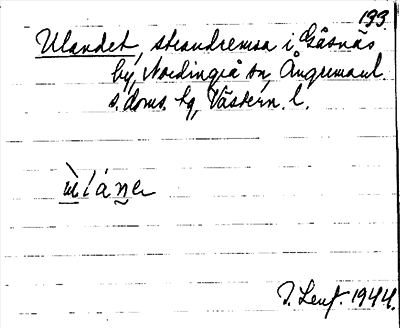 199.
Ulandet, strandremsa i Gåsnäs
by, Nordingrå sn, Ångermanl.
s. doms. hg, Västern. l.
J. Lenf. 1944.